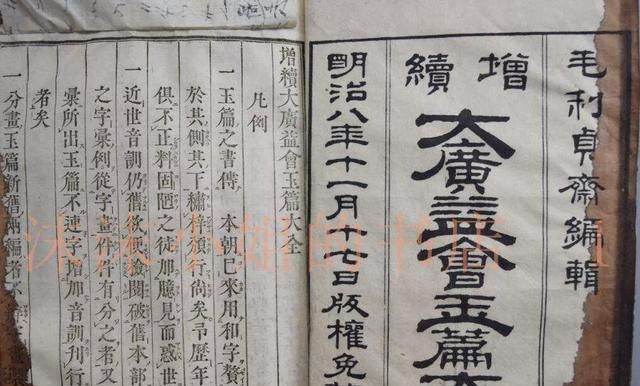 毛利貞齋編輯
增續
大廣益會玉篇大
明治八年十一月十七日版權免
增續大廣益會玉篇大全
凡例
一玉篇之書傳 本朝已來用和字贅
於其側其下繡梓頒行尚矣歷年
俱不正料固陋之徒加臆見而惑世
一近世音訓仍舊欲便檢閱破舊本部
之字彙例從字畫件件有分之者又
彙所出玉篇不字增加音訓刊行
者矣
一分畫玉篇新舊兩編者不
沫沫小姐的书店 1